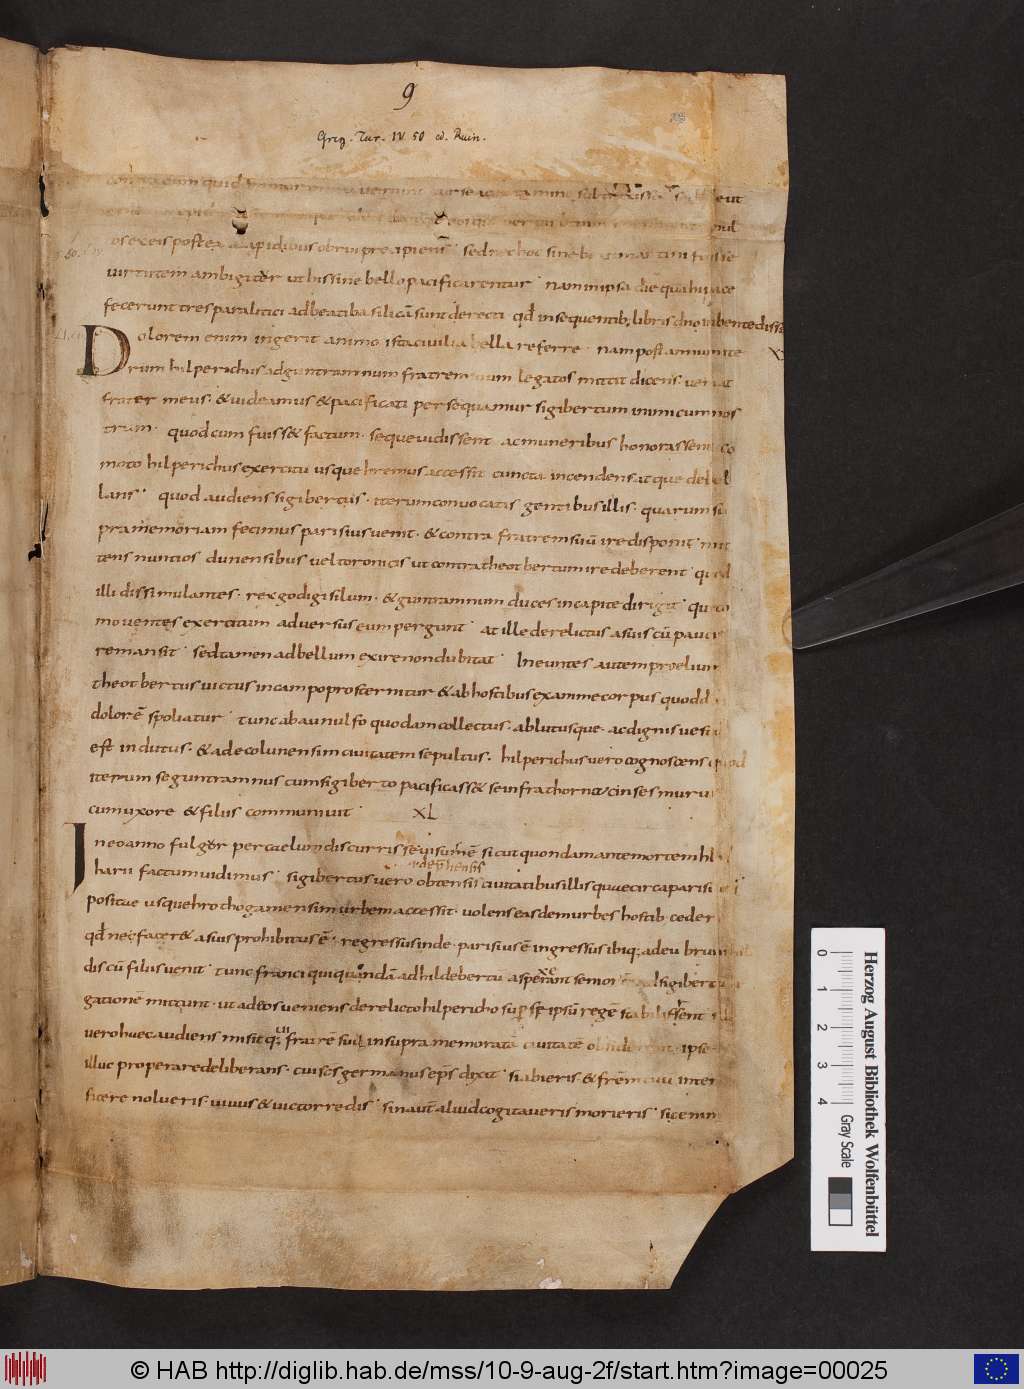 9
Greg. Tur. IV 50 ed. Ruin.
contra eum quid
os ex eis postea lapidibus obrui precipiens sed nec hoc sine be
uirtutem ambigitur ut hi sine bello pacificarentur nam in ipsa die qua hi pace
fecerunt tres paralitici ad beati basilicā sunt derecti qđ in sequentib; libris dno iubente diss
Dolorem enim ingerit animo ista ciuilia bella referre nam post annum ite
rum hilperichus ad guntramnum fratrem suum legatos mittit dicens ueniat
frater meus & uideamus & pacificati persequamur sigibertum inimicum nos
trum quod cum fuiss& factum seque uidissent ac muneribus honorassent co
moto hilperichus exercitu usque hremus accessit cuncta incendens atque debel
lans quod audiens sigibertus iterum conuocatis gentibus illis quarum su
pra memoriam fecimus parisius uenit & contra fratrem suū ire disponit mit
tens nuntios dunensibus uel toronicis ut contra theotbertum ire deberent quod
illi dissimulantes rex godigisilum & guntramnum duces in capite dirigit qui co
mouentes exercitum aduersus eum pergunt at ille derelictus a suis cū paucis
remansit sed tamen ad bellum exire non dubitat Ineuntes autem proelium
theotbertus uictus in campo prosternitur & ab hostibus exanime corpus quod d
dolorē spoliatur tunc ab aunulfo quodam collectus ablutusque ac dignis uesti
est indutus & ad ecolunensim ciuitatem sepultus hilperichus uero cognoscens quod
iterum se guntramnus cum sigiberto pacificass& se infra thornacinses muru
cum uxore & filiis communiuit XL
In eo anno fulgor per caelum discurrisse uisum ē sicut quondam ante mortem hl
harii factum uidimus sigibertus uero obtensis ciuitatibus illis quae circa parisi
positae usque hrothogamensim urbem accessit uolens easdem urbes hostib ceder
qđ ne facer& a suis prohibitus ē regressus inde parisius ē ingressus ibiq; ad eū brun
dis cū filiis uenit tunc franci qui quondā ad hildebertū asperant seniorē ad sigibert
gationē mittunt ut ad eos ueniens derelicto hilpericho sup se ipsū regē stabilissent
uero haec audiens misit qui fratrē suū in supra memorata ciuitatē ipse
illuc properare deliberans cui scs germanus eps dixit si abieris & frēm tuū inter
ficere nolueris uiuus & uictor redis sin aut aliud cogitaueris morieris sic enim
Herzog August Bibliothek Wolfenbüttel
0 1 2 3 4
Gray Scale
© HAB http://diglib.hab.de/mss/10-9-aug-2f/start.htm?image=00025